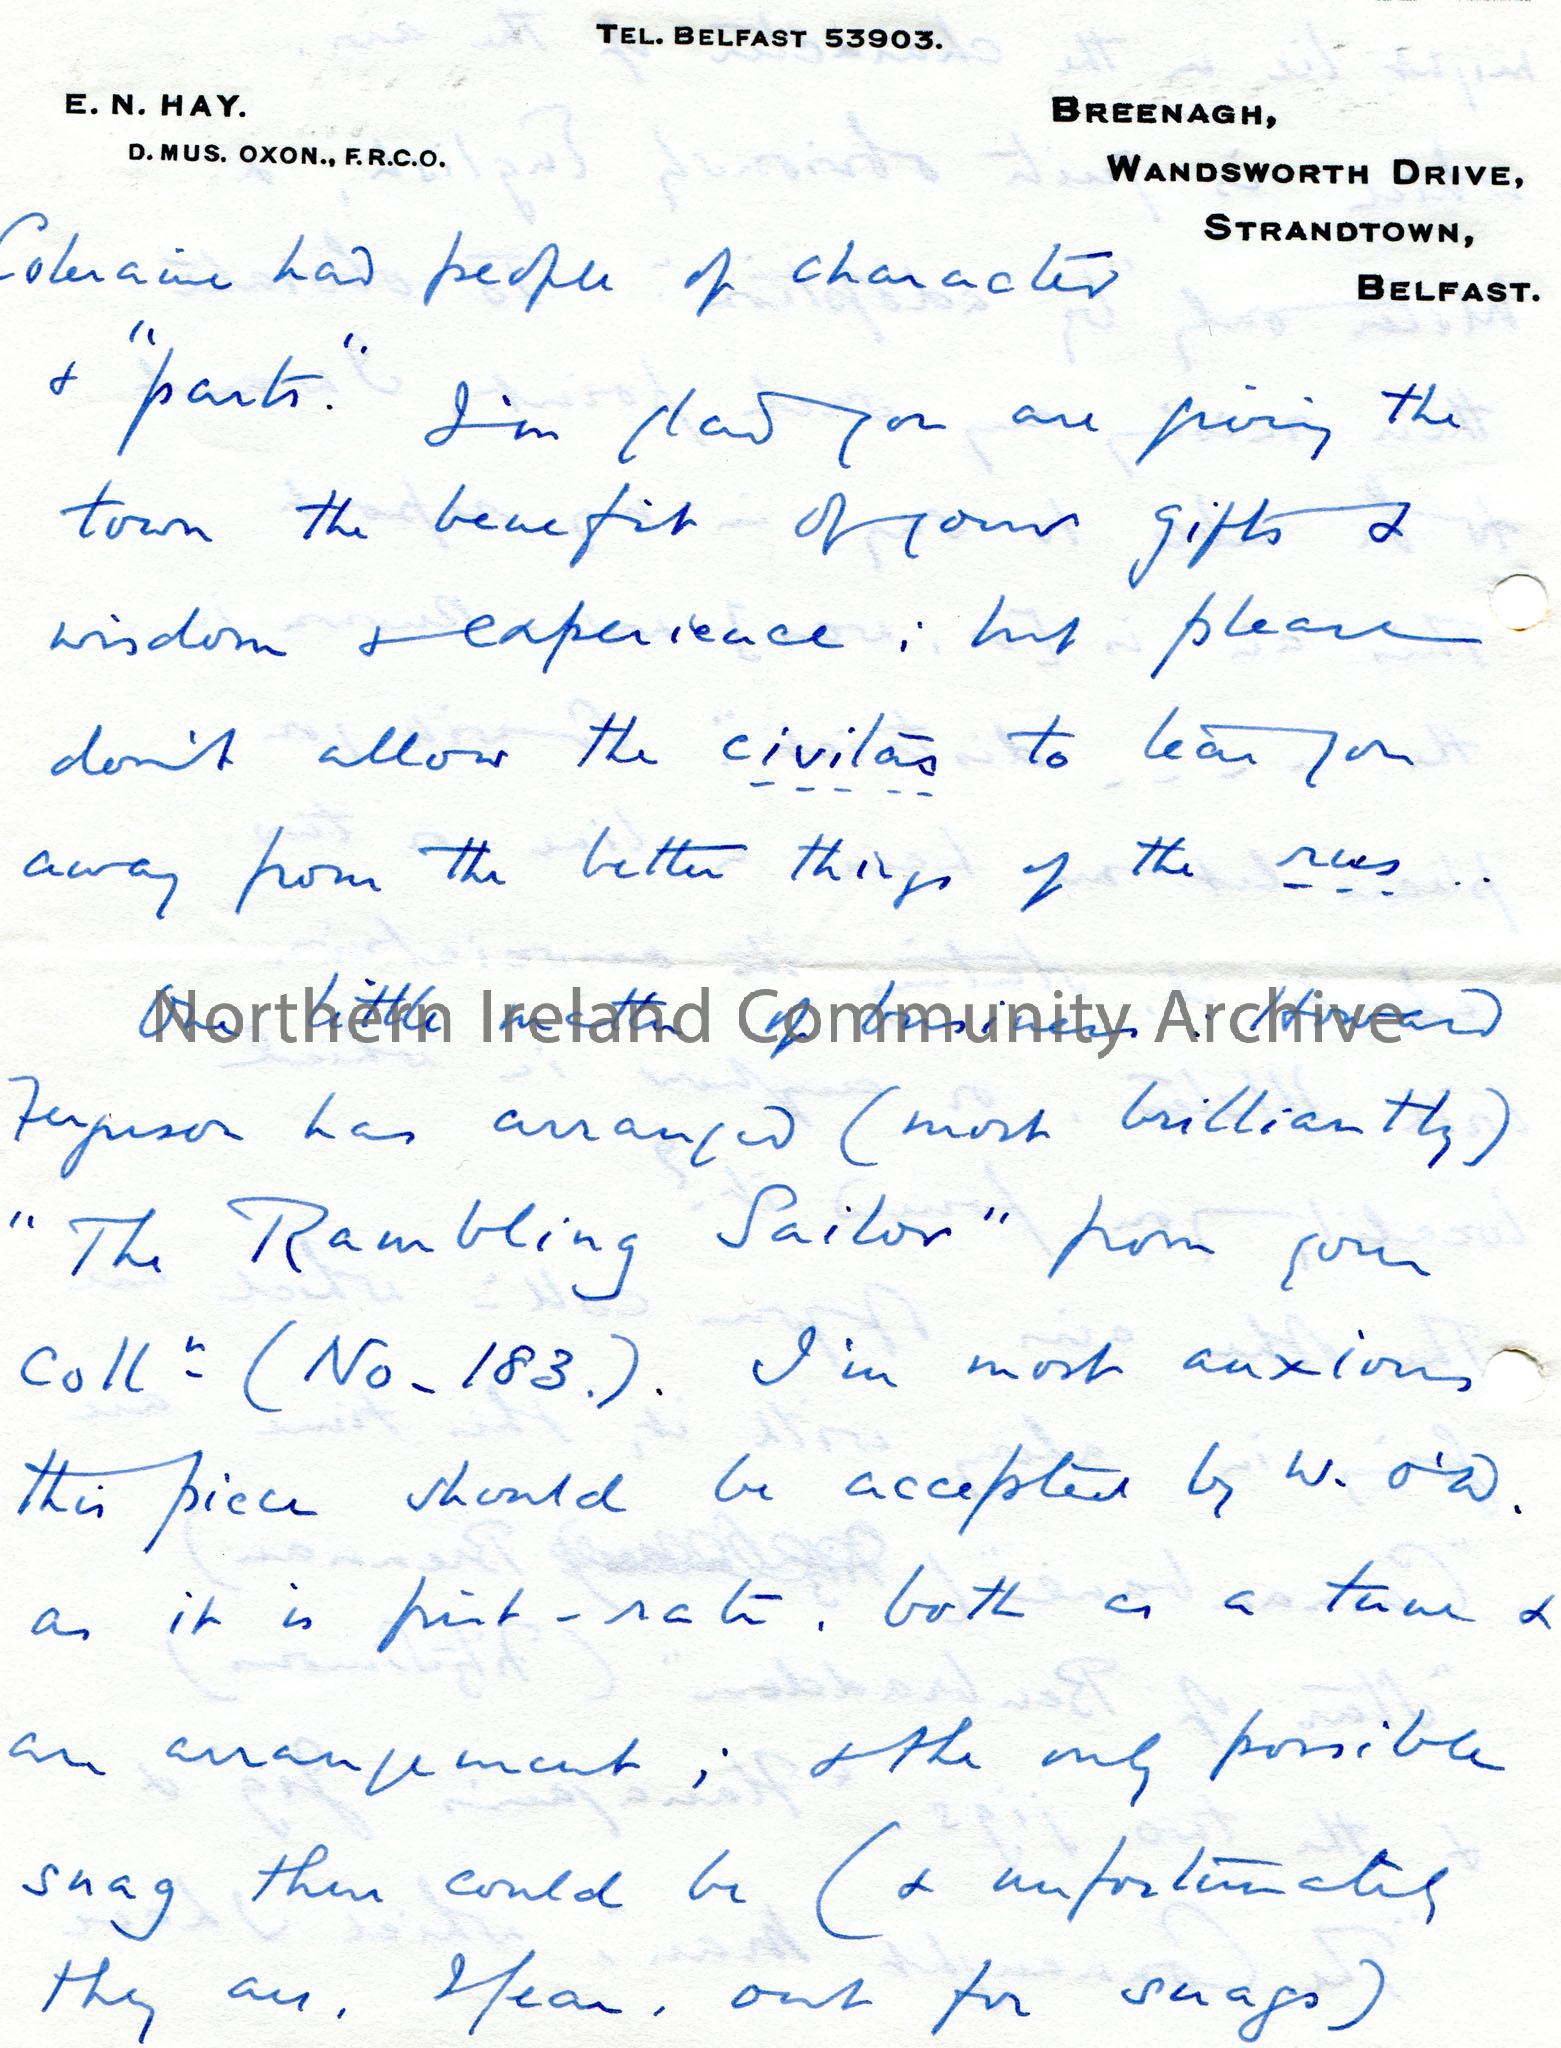 TEL. BELFAST 53903.
E. N. HAY.
D. MUS. OXON., F.R.C.O.
BREENAGH,
WANDSWORTH DRIVE,
STRANDTOWN,
BELFAST.
Coleraine had people of character
& "parts". I'm glad you are giving the
town the benefit of your gifts &
wisdom & experience; but please
don't allow the civitas to tear you
away from the better things of the rus..
One little matter of business: Howard
Northern Ireland Community Archive
Ferguson has arranged (most brilliantly)
"The Rambling Sailor" from your
Colln (No. 183.). I'm most anxious
this piece should be accepted by W. O'D.
as it is first-rate, both as a tune &
an arrangement; & the only possible
snag there could be (& unfortunately
they are, I fear, out for snags)